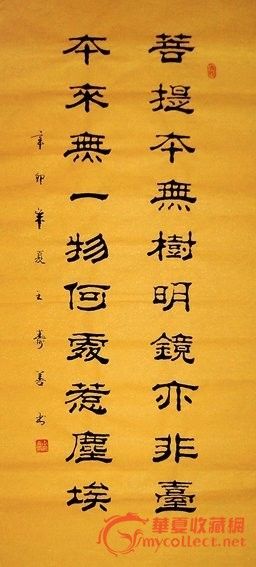 菩提本無樹明鏡亦非臺
本來無一物何處惹塵埃
辛卯年夏王壽善书
華夏收藏網
mycollect.net